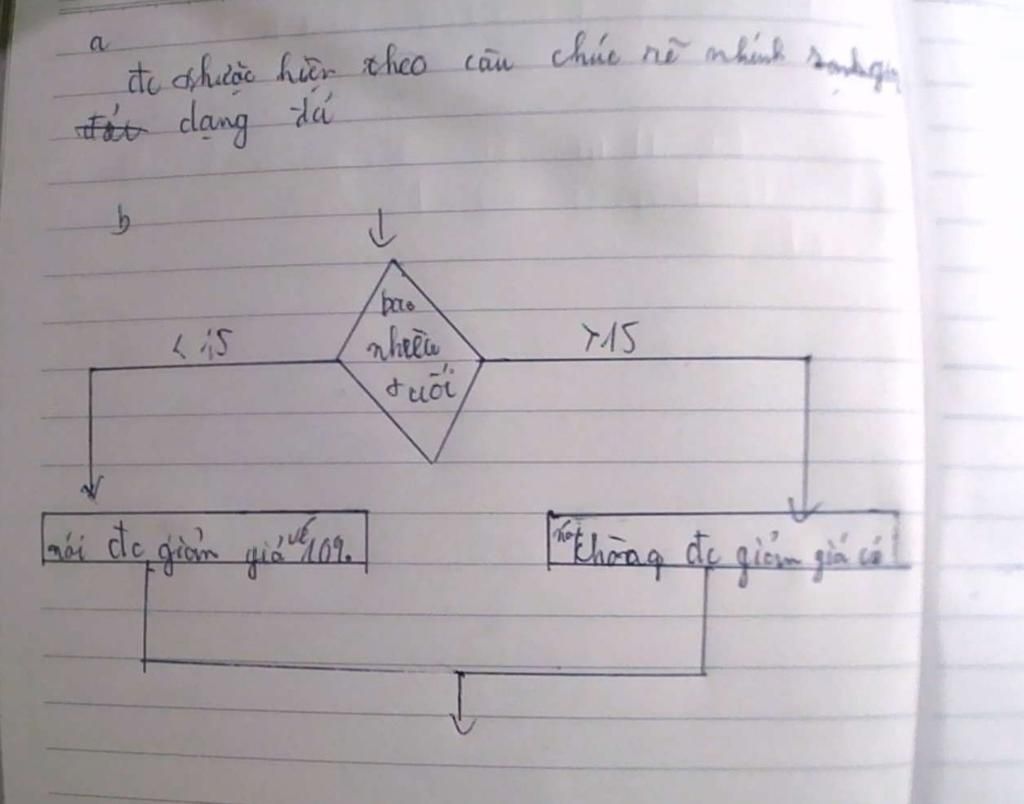 a
đc thược hiện theo câu chúc rẽ nhính
dạng đủ
b
bao
nhiêu
tuổi
< 15
>15
nói đc giảm giá vé 10%.
nói không đc giảm giá cả